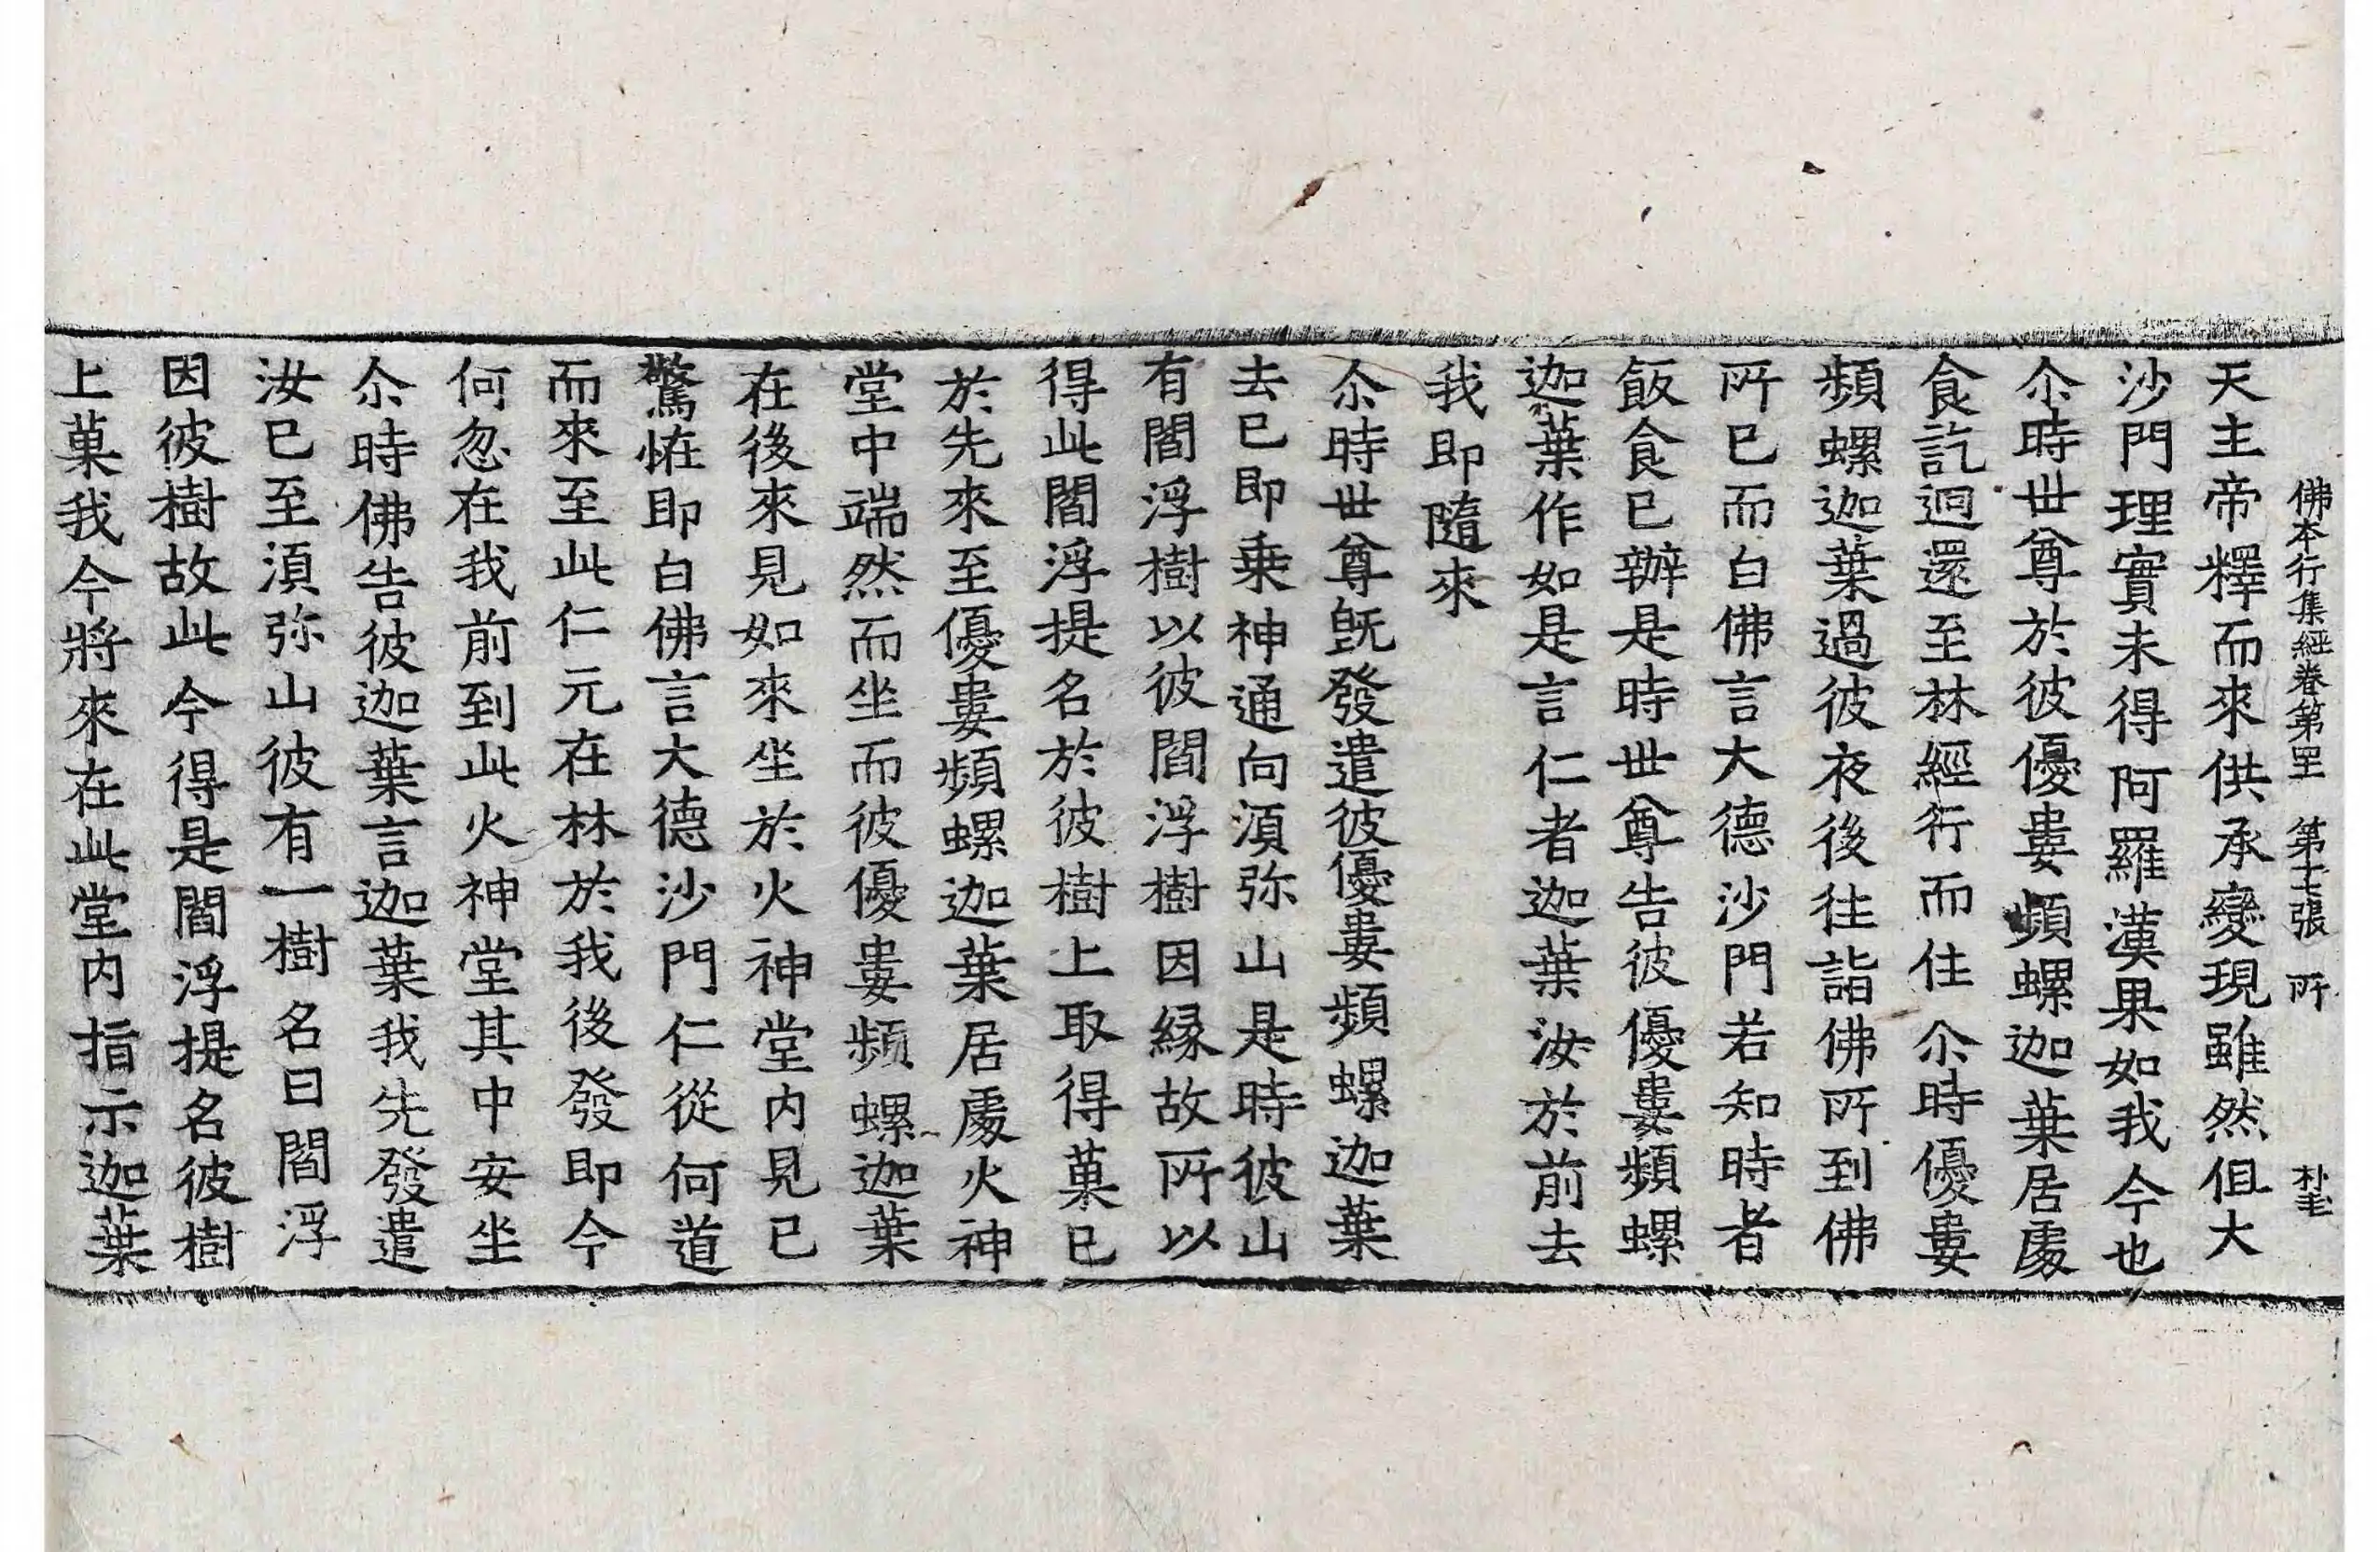 佛本行集經卷第四十一 第十七張 所
天主帝釋而來供承變現雖然但大
沙門理實未得阿羅漢果如我今也
尒時世尊於彼優婁頻螺迦葉居處
食訖迴還至林經行而住尒時優婁
頻螺迦葉過彼夜後往詣佛所到佛
所已而白佛言大德沙門若知時者
飯食已辦是時世尊告彼優婁頻螺
迦葉作如是言仁者迦葉汝於前去
我即隨來
尒時世尊旣發遣彼優婁頻螺迦葉
去已即乗神通向湏弥山是時彼山
有閻浮樹以彼閻浮樹因縁故所以
得此閻浮提名於彼樹上取得菓已
於先來至優婁頻螺迦葉居處火神
堂中端然而坐而彼優婁頻螺迦葉
在後來見如來坐於火神堂内見已
驚恠即白佛言大德沙門仁從何道
而來至此仁元在林於我後發即今
何忽在我前到此火神堂其中安坐
尒時佛告彼迦葉言迦葉我先發遣
汝已至湏弥山彼有一樹名曰閻浮
因彼樹故此今得是閻浮提名彼樹
上菓我今將來在此堂内指示迦葉